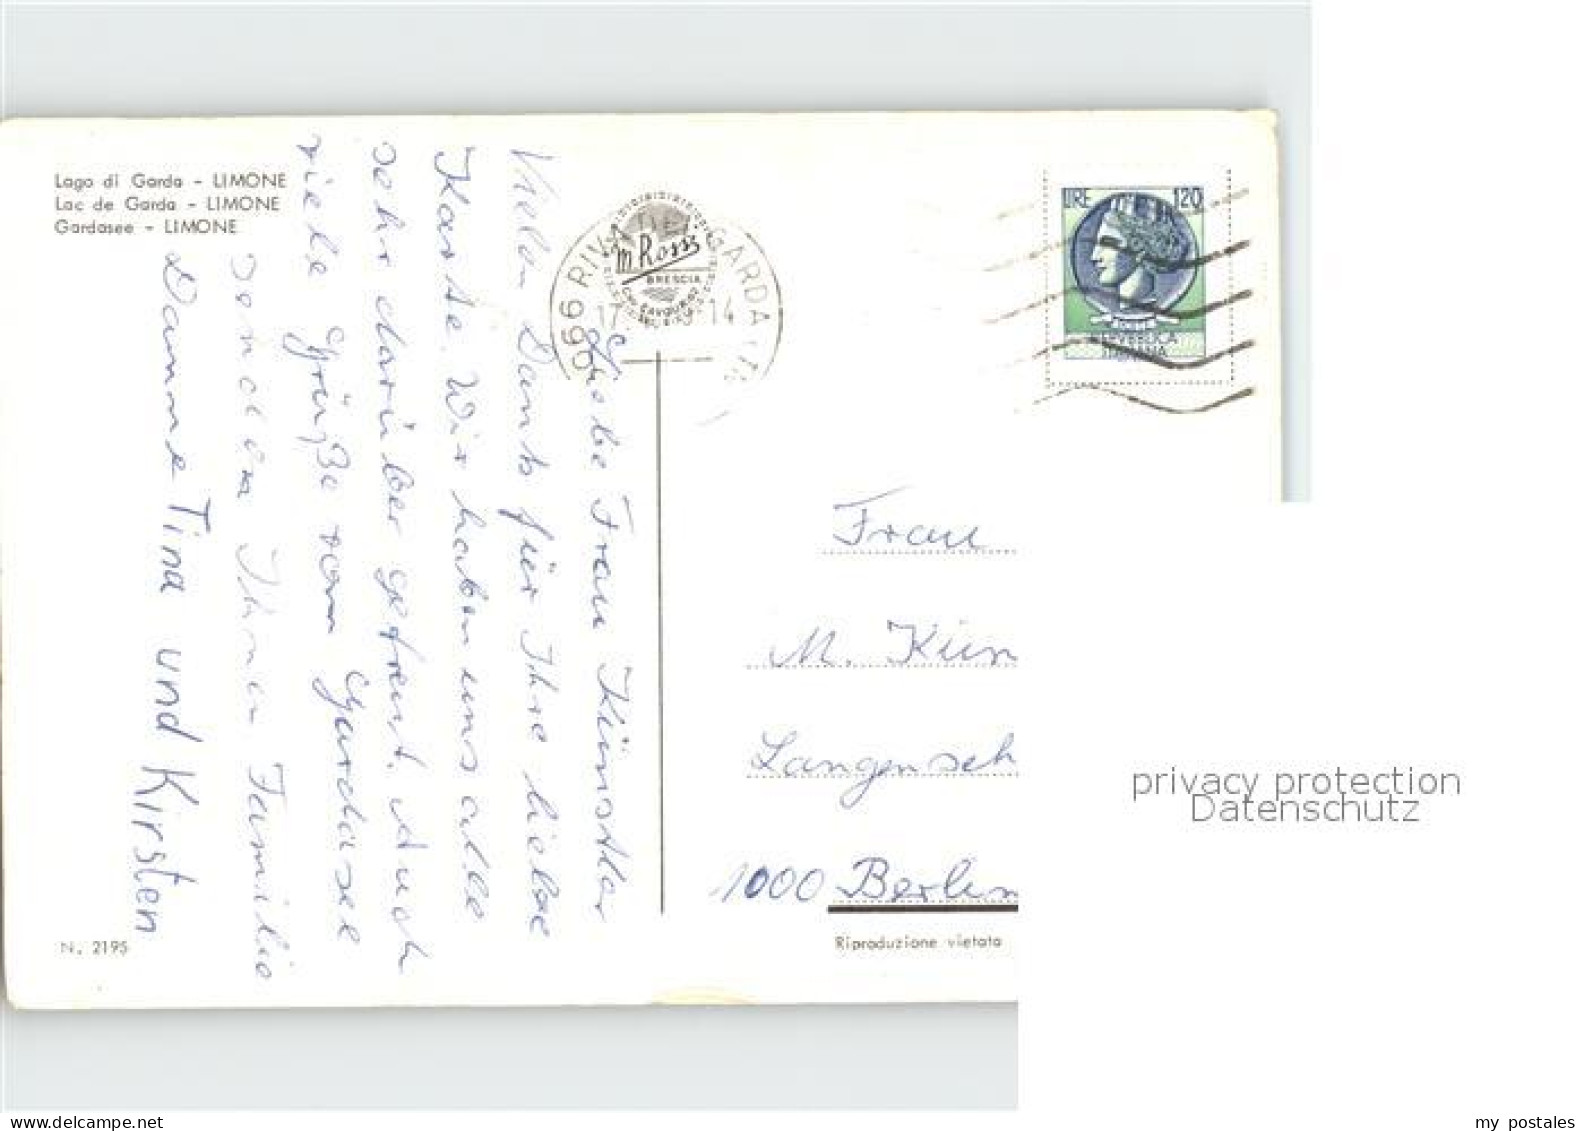 Lago di Garda - LIMONE
Lac de Garda - LIMONE
Gardasee - LIMONE
Liebe Frau Künstler
Vielen Dank für Ihre liebe
Karte. Wir haben uns alle
sehr darüber gefreut. Auch
viele Grüße vom Gardasee
senden Ihnen Familie
Damme Tina und Kirsten
N. 2195
RIVA DEL GARDA
M. Rossi
BRESCIA
LIRE 120
REPUBBLICA
ITALIANA
Frau
M. Kün
Langensch
1000 Berlin
Riproduzione vietata
privacy protection
Datenschutz
my postales